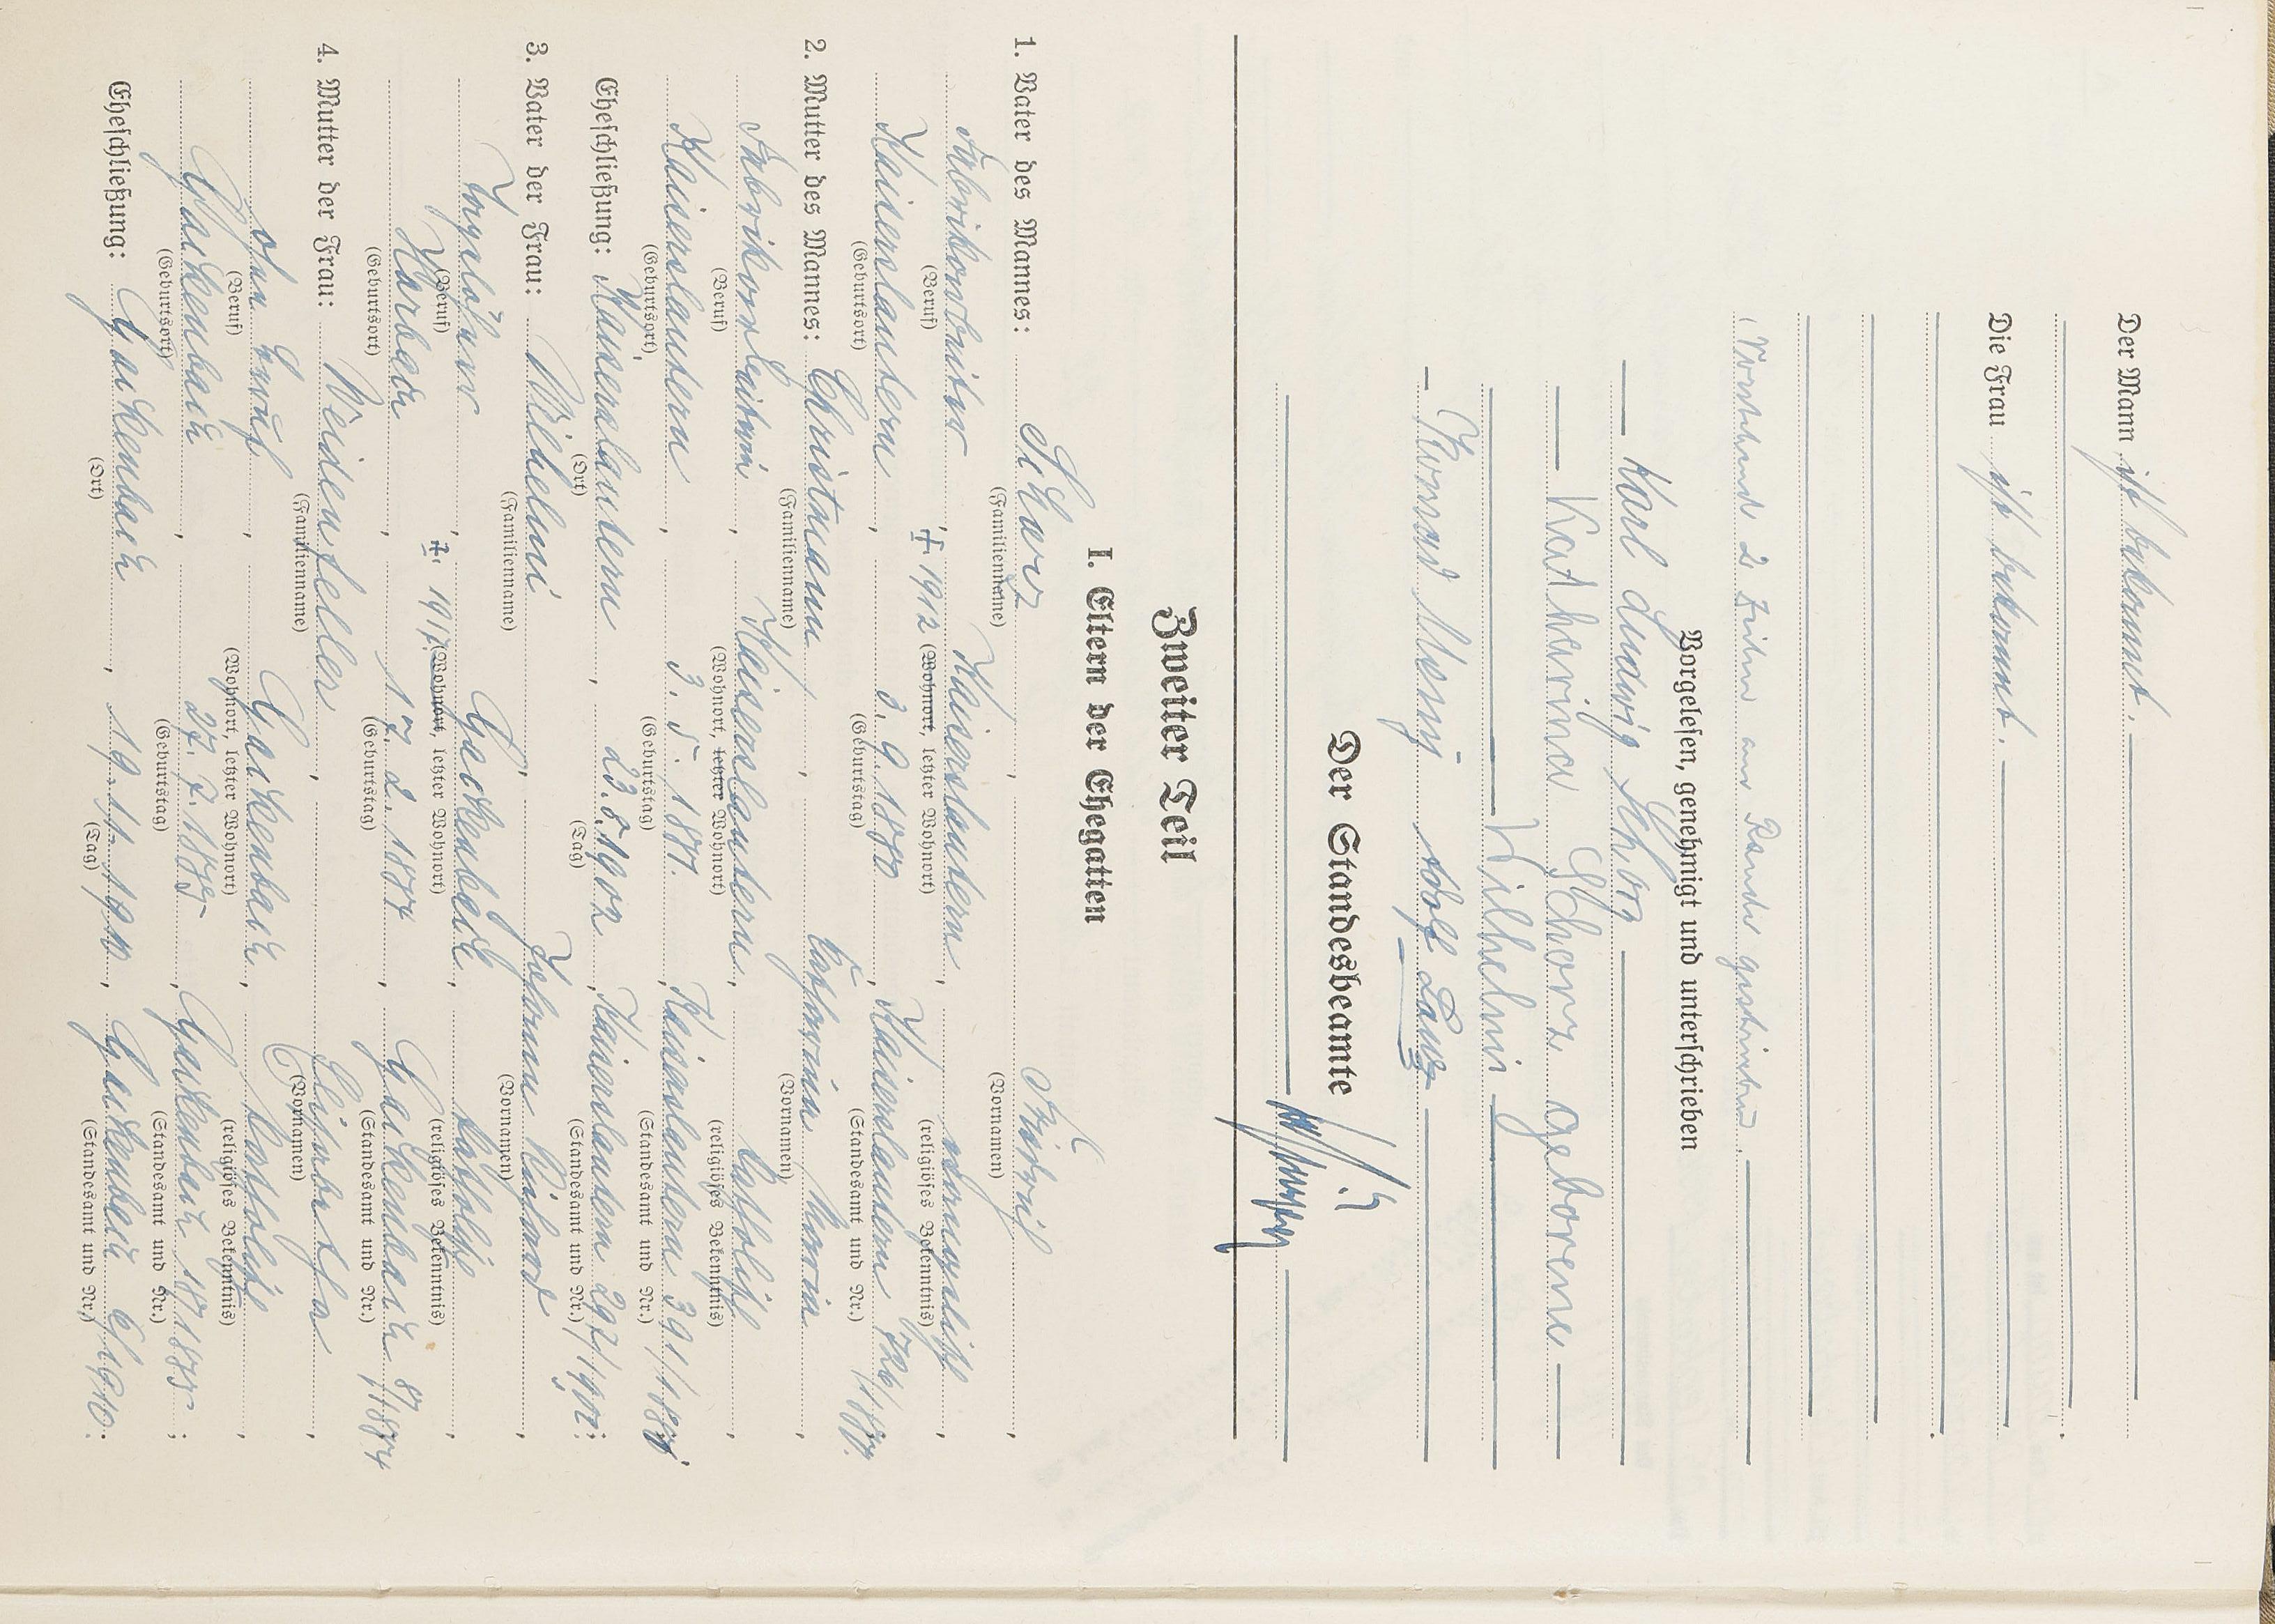 Der Mann ist bekannt.
Die Frau ist bekannt.
(Vorstehend 2 Zeilen am Rande gestrichen).
Vorgelesen, genehmigt und unterschrieben
Karl Ludwig
Katharina Schorr geborene
Wilhelmi
Adolf Lang
Der Standesbeamte
Zweiter Teil
I. Eltern der Ehegatten
1. Vater des Mannes: Friedrich
(Familienname) (Vornamen)
Fabrikarbeiter, † 1912 Kaiserslautern, protestantisch,
(Beruf) (Wohnort, letzter Wohnort) (religiöses Bekenntnis)
Kaiserslautern, 3. 9. 1880, Kaiserslautern
(Geburtsort) (Geburtstag) (Standesamt und Nr.)
2. Mutter des Mannes: Christmann, Katharina Maria,
(Familienname) (Vornamen)
Fabrikarbeiterin, Kaiserslautern, katholisch,
(Beruf) (Wohnort, letzter Wohnort) (religiöses Bekenntnis)
Kaiserslautern, 3. 5. 1881, Kaiserslautern 391/1881;
(Geburtsort) (Geburtstag) (Standesamt und Nr.)
Eheschließung: Kaiserslautern, 23. 8. 1902, Kaiserslautern 297/1902;
(Ort) (Tag) (Standesamt und Nr.)
3. Vater der Frau: Wilhelmi, Johann
(Familienname) (Vornamen)
Tagelöhner, † 1917. Hackenbach, katholisch,
(Beruf) (Wohnort, letzter Wohnort) (religiöses Bekenntnis)
17. 2. 1884
(Geburtsort) (Geburtstag) (Standesamt und Nr.)
4. Mutter der Frau: Weidenfeller, Elisabetha,
(Familienname) (Vornamen)
ohne Beruf, katholisch,
(Beruf) (Wohnort, letzter Wohnort) (religiöses Bekenntnis)
27. 7. 1885
(Geburtsort) (Geburtstag) (Standesamt und Nr.)
Eheschließung: 19. 11. 1910, 6/1910.
(Ort) (Tag) (Standesamt und Nr.)